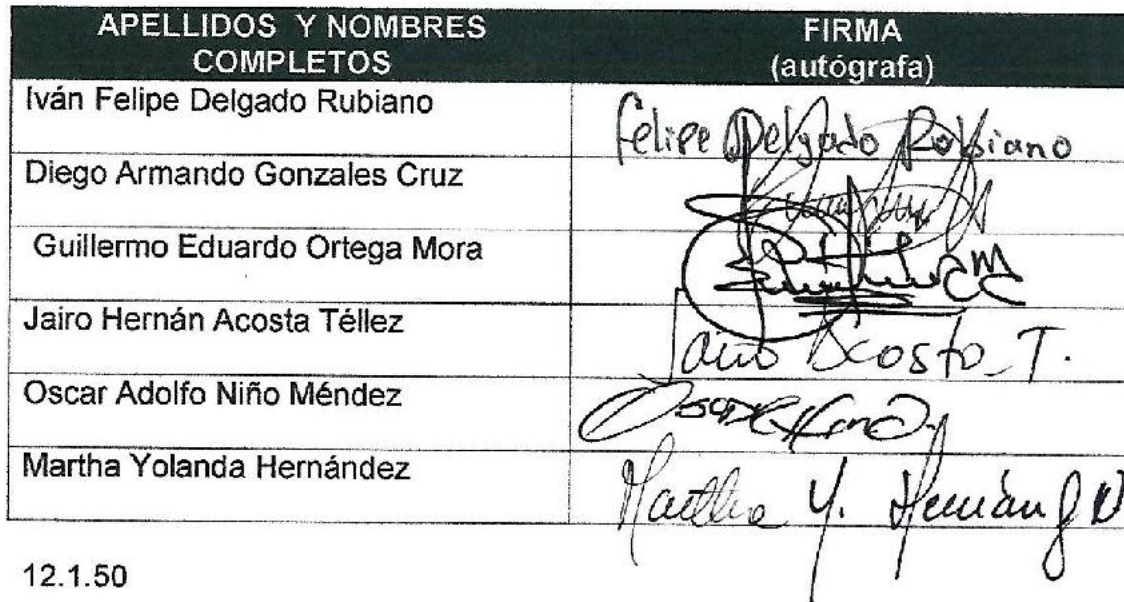 APELLIDOS Y NOMBRES
COMPLETOS
FIRMA
(autógrafa)
Iván Felipe Delgado Rubiano
Felipe Delgado Rubiano
Diego Armando Gonzales Cruz
Guillermo Eduardo Ortega Mora
Jairo Hernán Acosta Téllez
Jairo Acosta T.
Oscar Adolfo Niño Méndez
Martha Yolanda Hernández
Martha Y. Hernánd
12.1.50